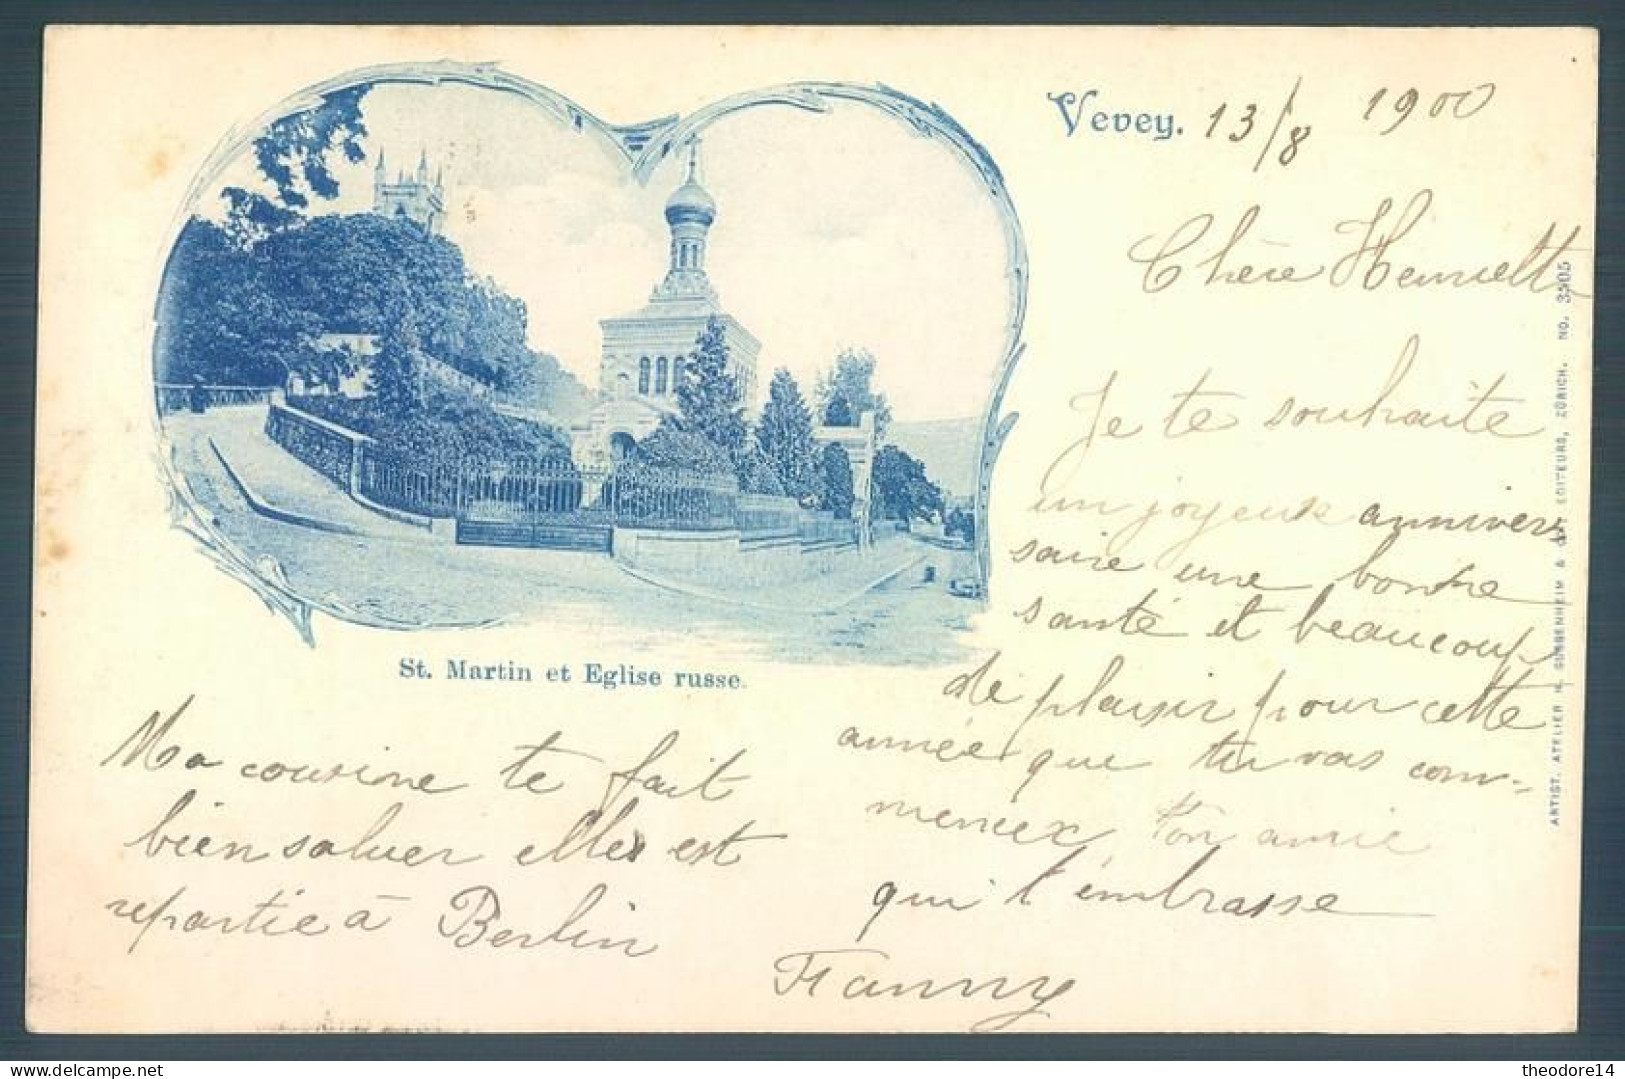 Vevey. 13/8 1900
Chère Henriette
Je te souhaite
un joyeuse annivers
saire une bonne
santé et beaucoup
de plaisir pour cette
année que tu vas com-
mencex, ton amie
qui t'embrasse
Fanny
St. Martin et Eglise russe.
Ma cousine te fait
bien saluer elle est
repartie à Berlin
ARTIST. ATELIER H. GUGGENHEIM & Co., EDITEURS, ZÜRICH. NO. 3505
theodore14